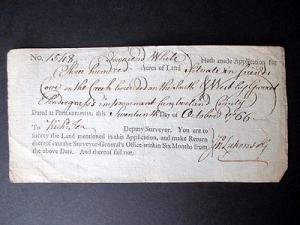 No. 1518 White Hath made Application for
Three hundred Acres of Land Situate in
one on the Creek bounded on the South & West by
improvement Cumberland County
Dated at PHILADELPHIA, this Day of October 1766
To Deputy Surveyor. You are to
survey the Land mentioned in this Application, and make Return
thereof into the Surveyor-General's Office within Six Months from
the above Date. And thereof fail not.
Jno. Lukens S.G.